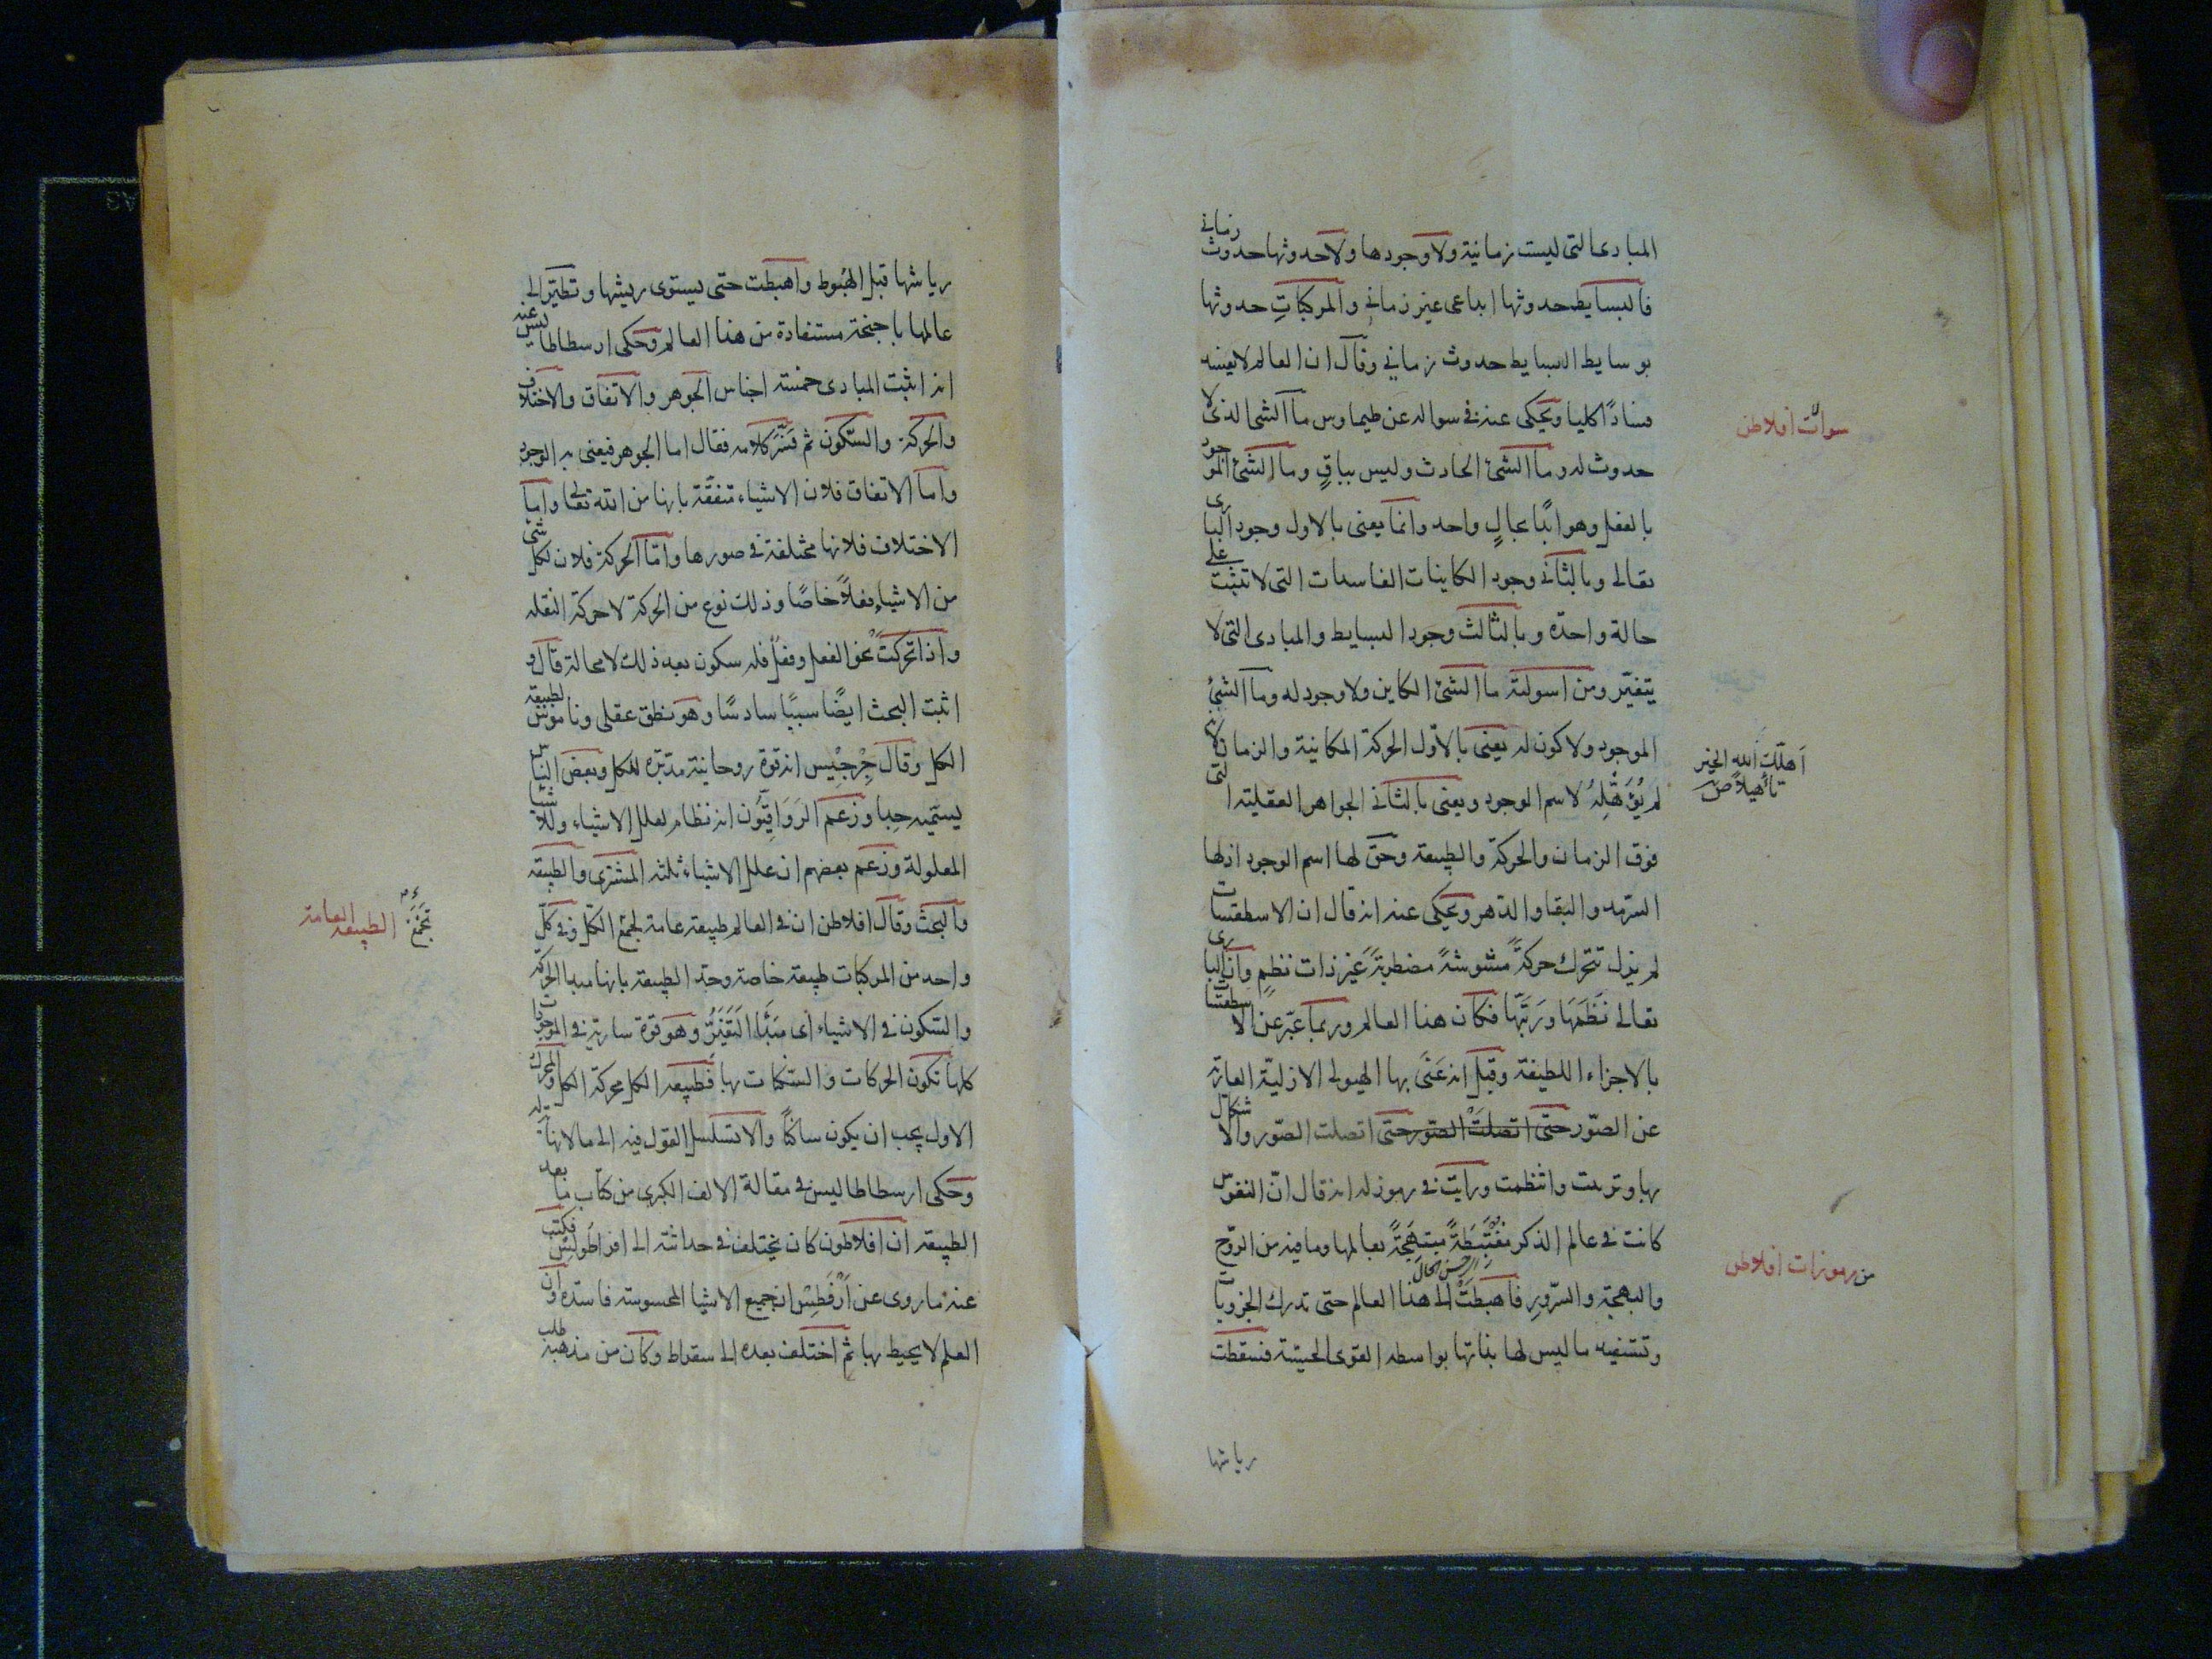 المبادى التى ليست زمانية ولا وجودها ولا حدوثها حدوث زمانى
فالبسايط حدوثها ابداعى غير زمانى والمركبات حدوثها
بوسايط البسايط حدوث زمانى وقال ان العالم لا يفسد
فسادًا كليا ويحكى عنه فى سواله عن طيماوس ما الشى الذى لا
حدوث له وما الشئ الحادث وليس بباقٍ وما الشئ الموجود
بالفعل وهو ابدًا بحالٍ واحد وانما يعنى بالاول وجود البارى
تعالى وبالثانى وجود الكاينات الفاسدات التى لا تثبت على
حالة واحدة وبالثالث وجود البسايط والمبادى التى لا
يتغيّر ومن اسولته ما الشئ الكاين ولا وجود له وما الشئ
الموجود ولا كون له يعنى بالاول الحركة المكانية والزمان لانه
لم يؤهّله لاسم الوجود ويعنى بالثانى الجواهر العقلية التى
فوق الزمان والحركة والطبيعة وحق لها اسم الوجود اذ لها
السرمد والبقا والدهر ويحكى عنه انه قال ان الاسطقسات
لم يزل تتحرك حركةً مشوشةً مضطربةً غير ذات نظم وان البارى
تعالى نَظَمَهَا وَرَتَّبَها فكان هذا العالم وربما عبّر عن الاسطقسات
بالاجزاء اللطيفة وقيل انه عَنَى بها الهيولى الازلية العارية
عن الصّور حتى اتصلت الصّور حتى اتصلت الصّور والاشكال
بها وترتبت وانتظمت ورايت فى رموز له انه قال انّ النفوس
كانت فى عالم الذكر مغتبطةً مبتهجةً بعالمها وما فيه من الروح
والبهجة والسّرور فاهبطت الى هذا العالم حتى تدرك الجزويات
وتستفيد ما ليس لها بذاتها بواسطه القوى الحسّية فسقطت
رياشها
سوالات افلاطن
أهلك الله الخير تأهيلًا ص
من رموزات افلاطن
رياشها قبل الهُبوط واهبطت حتى يستوى ريشها وتطير الى
عالمها باجنحة مستفادة من هذا العالم وحكى ارسطاطاليس عنه
انه اثبت المبادى خمسة اجناس الجوهر والاتفاق والاختلاف
والحركة والسّكون ثم فسّر كلامه فقال اما الجوهر فيعنى به الوجود
واما الاتفاق فلان الاشياء متفقّة بانها من الله تعالى واما
الاختلاف فلانها مختلفة فى صورها وامّا الحركة فلان لكل شئ
من الاشياء فعلًا خاصًا وذلك نوع من الحركة لا حركة النقله
واذا تحركت نحو الفعل وفعل فله سكون بعد ذلك لا محالة قال و
اثبت البحث ايضًا سببًا سادسًا وهو نطق عقلى وناموس لطبيعة
الكل وقال جِرْجِيْس انه قوة روحانية مدبّرة للكل وبعض الناس
يسمّيه جدا وزعم الرَوَاقيّون انه نظام لعلل الاشياء وللاشيا
المعلولة وزعم بعضهم ان علل الاشياء ثلثه المشترى والطبيعة
والبحث وقال افلاطن ان فى العالم طبيعة عامة تجمع الكلّ وفى كلّ
واحد من المركبات طبيعة خاصة وحدّ الطبيعة بانها مبدا الحركة
والسّكون فى الاشياء اى مَبْدَأ التَغَيّر وهو قوة سارية فى الموجودات
كلها تكون الحركات والسّكنات بها فطبيعه الكل محركة الكل والمحرك
الاول يجب ان يكون ساكنًا والا تسلسل القول فيه الى ما لا نهاية له
وحكى ارسطاطاليس فى مقالة الالف الكبرى من كتاب ما بعد
الطبيعة ان افلاطون كان يختلف فى حداثته الى اقراطُولِس فكتب
عنه ما روى عن اَرْقَطِس ان جميع الاشيا المحسوسه فاسدة وان
العلم لا يحيط بها ثم اختلف بعده الى سقراط وكان من مذهبه طلب
الطبيعة العامة